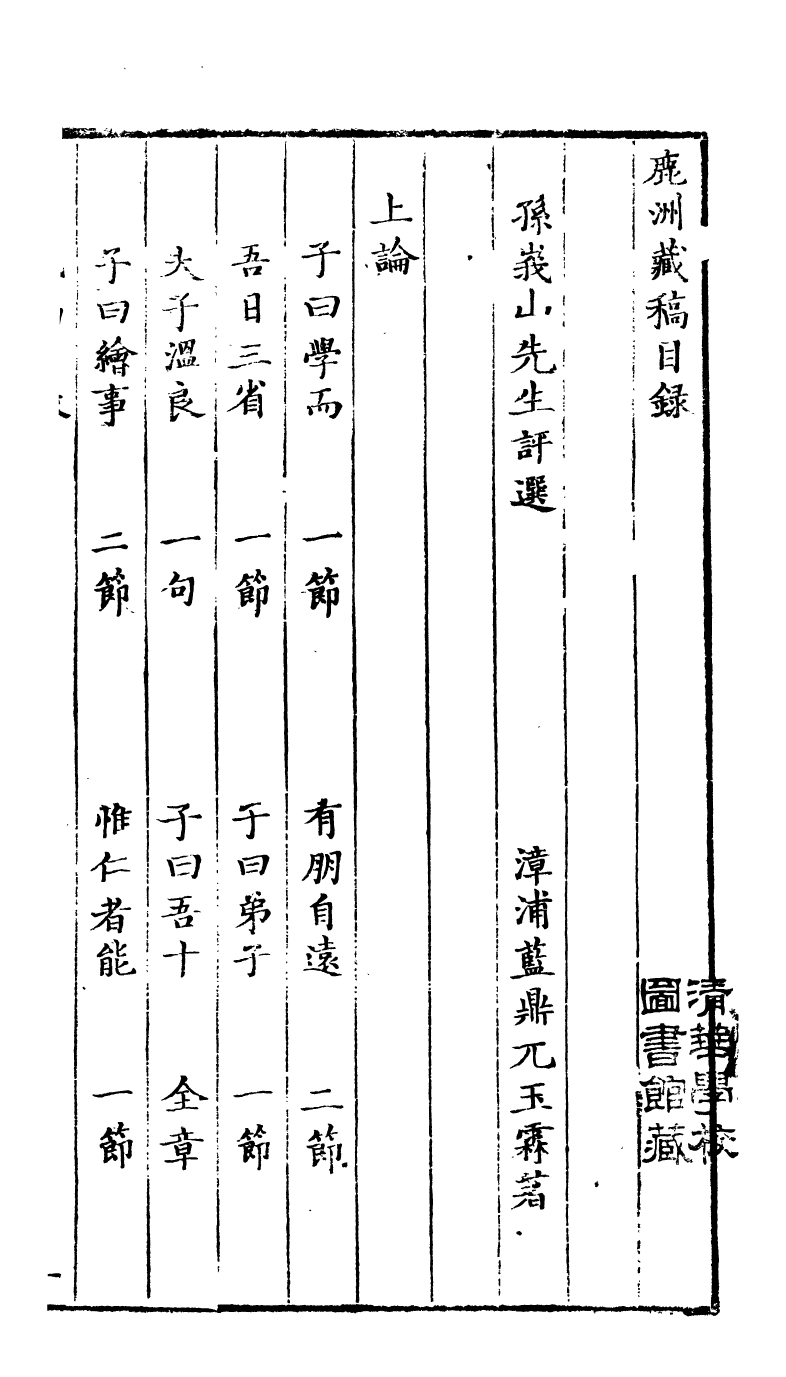 鹿洲藏稿目録
孫峩山先生評選　漳浦藍鼎元玉霖著
上論
子曰學而　一節　有朋自遠　二節
吾日三省　一節　子曰弟子　一節
夫子溫良　一句　子曰吾十　全章
子曰繪事　二節　惟仁者能　一節
一
清華學校
圖書館藏